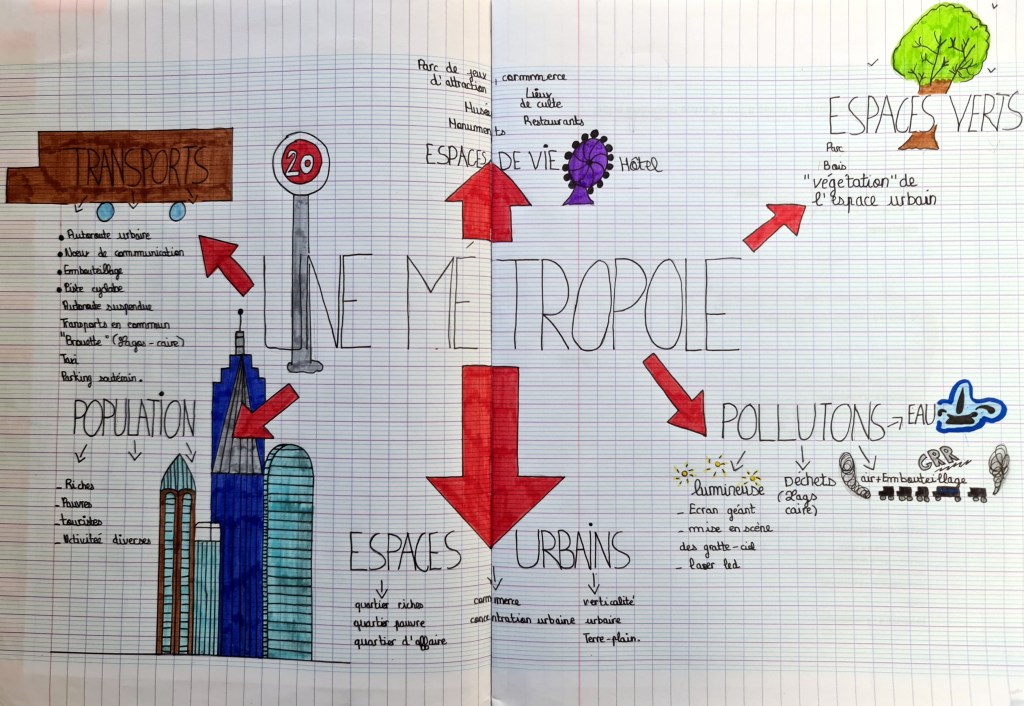 Parc de jeux
d'attraction
, commerce
Lieux
de culte
Musée
Monuments
Restaurants
ESPACES DE VIE
Hôtel
ESPACES VERTS
Parc
Bois
"végétation" de
l'espace urbain
TRANSPORTS
20
• Autoroute urbaine
• Noeux de communication
• Embouteillage
• Piste cyclabe
Autoroute suspendue
Transports en commun
"Brouette" (Lags-caire)
Taxi
Parking soutérain.
UNE MÉTROPOLE
POPULATION
- Riches
- Pauvres
- touristes
- Activiteé diverses
POLLUTONS → EAU
lumineuse
- Ecran géant
- mise en scène
des gratte-ciel
- laser led
Déchets
(Lags
caire)
GRR
air+Embouteillage
ESPACES URBAINS
quartier riches
quartier pauvre
quartier d'affaire
commerce
concentration urbaine
verticalité
urbaine
Terre-plain.